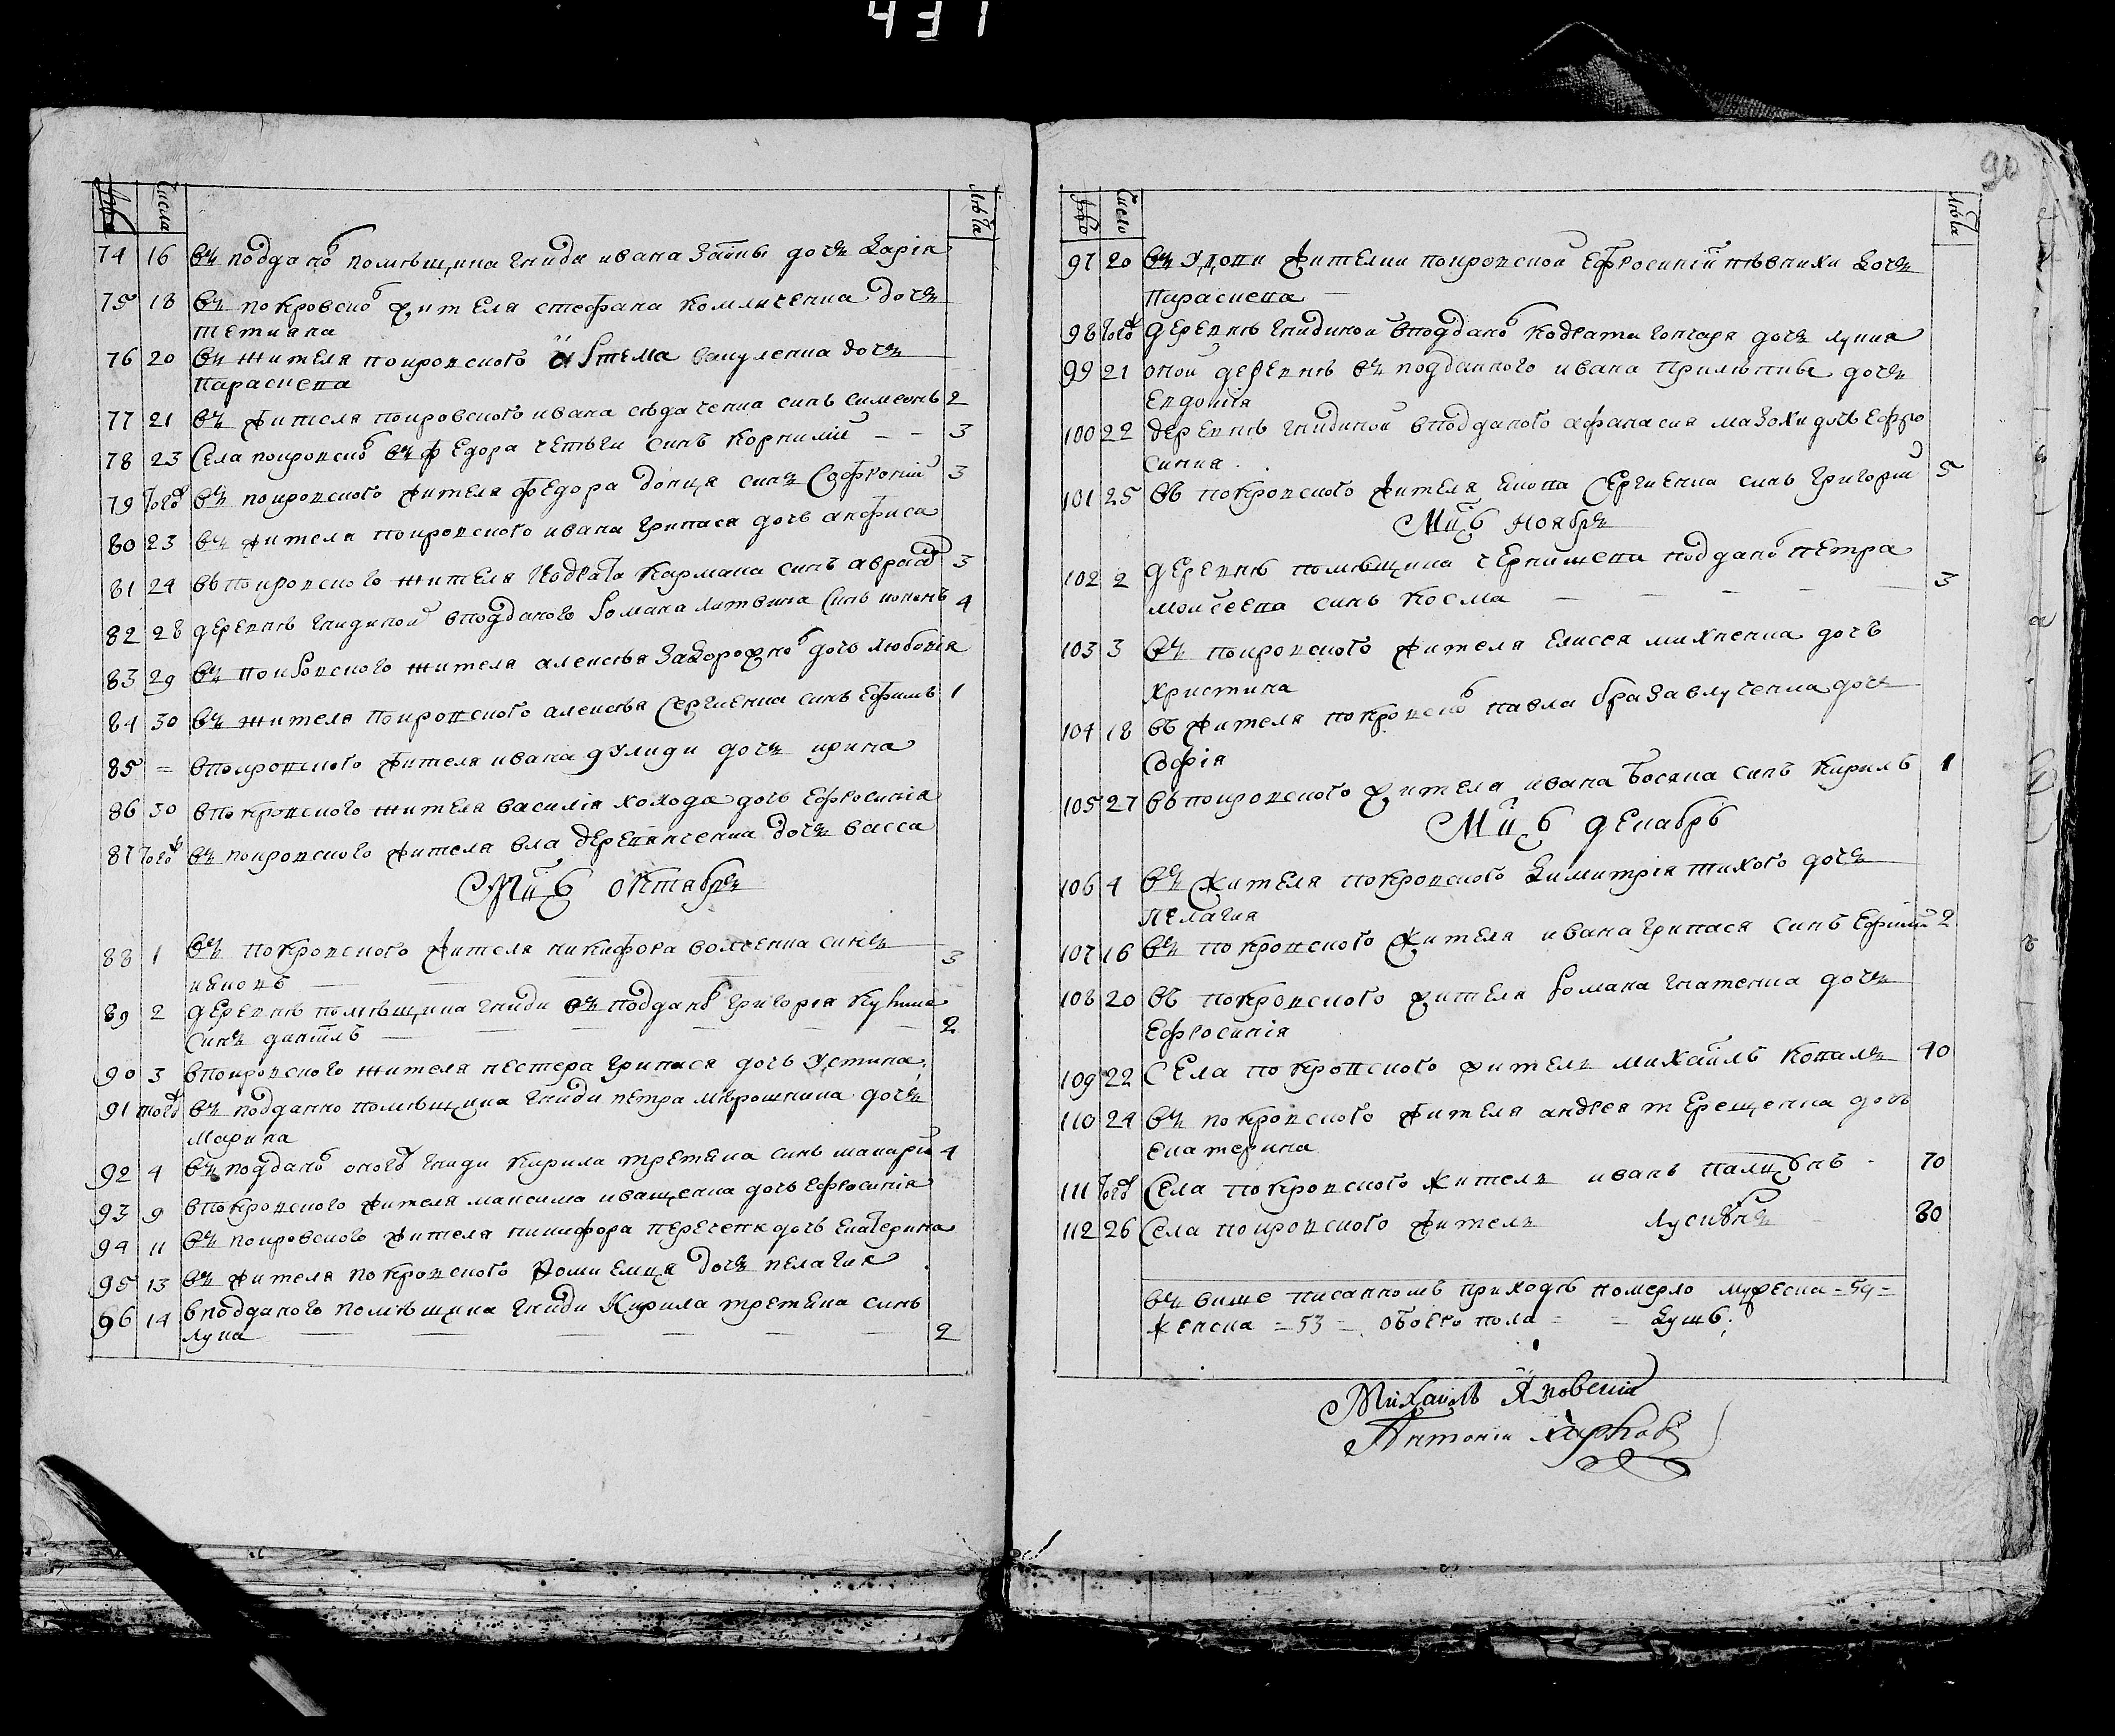 431
№
Числа
лѣта
74 16 въ подданого помѣщика гниди ивана Заики дочъ Дарія
75 18 въ покровского жителя стефана Комличенка дочъ
тетиана
76 20 въ жителя покровского артема вакуленка дочъ
Параскева
77 21 въ жителя покровского ивана сѣдаченка синъ симеонъ 2
78 23 Села покровского въ федора чепѣги синъ Корнилій 3
79 того въ покровского жителя федора донця синъ Софроній 3
80 23 въ жителя покровского ивана Припася дочъ анфиса
81 24 въ покровского жителя Кодрата Кармана синъ аврамъ 3
82 28 деревнѣ гнидиной в подданого романа литвина синъ кононъ 4
83 29 въ покровского жителя алексѣя Задорожного дочъ любовія
84 30 въ жителя покровского алексѣя Сергиенка синъ Ефимъ 1
85 = в покровского жителя ивана дулиди дочъ ирина
86 30 в покровского жителя василія холода дочъ Ефросинія
87 того въ покровского жителя вла деревянченка дочъ васса
Мцъ октябръ
88 1 въ покровского жителя никифора волченка синъ 3
89 2 деревнѣ помѣщика гниди въ подданого григорія
синъ даниилъ 2
90 3 в покровского жителя нестера Припася дочъ устина
91 того въ подданно помѣщика гниди петра мирошника дочъ
Марина
92 4 въ подданого оного гниди Кирила третяка синъ макарій 4
93 9 в покровского жителя максима иващенка дочъ Ефросинія
94 11 въ покровского жителя никифора перечепк дочъ Екатерина
95 13 въ жителя покровского дочъ пелагия
96 14 в подданого помѣщика гниди Кирила третяка синъ
лука 2
90
№
Число
лѣта
97 20 въ удови жителки покровской Ефросиніи пѣвнихи дочъ
Параскева
98 того деревнѣ гнидиной в подданого Кодрати гончаря дочъ лукия
99 21 оной деревнѣ въ подданного ивана Прилѣпи дочъ
Евдокия
100 22 деревнѣ гнидиной в подданого афанасия мазохи дочъ Ефро
синия
101 25 въ покровского жителя якова Сергиенка синъ григорій 5
Мцъ Ноябръ
102 2 деревнѣ помѣщика черницева подданого петра
моисеева синъ Косма 3
103 3 въ покровского жителя Елисея михненка дочъ
христина
104 18 въ жителя покровского павла дочъ
Софія
105 27 въ покровского жителя ивана босяка синъ Кирилъ 1
Мцъ декабръ
106 4 въ жителя покровского Димитрія тихого дочъ
пелагия
107 16 въ покровского жителя ивана Припася синъ Ефимій 2
108 20 въ покровского жителя романа гнатенка дочъ
Ефросинія
109 22 Села покровского жителъ михаилъ Ковалъ 40
110 24 въ покровского жителя андрея терещенка дочъ
Екатерина
111 того Села покровского жителъ иванъ 70
112 26 Села покровского жителъ 80
въ више писанномъ приходѣ померло мужеска = 59 =
женска = 53 = обоего пола = = душъ
Михаилъ Яновский
Антоній